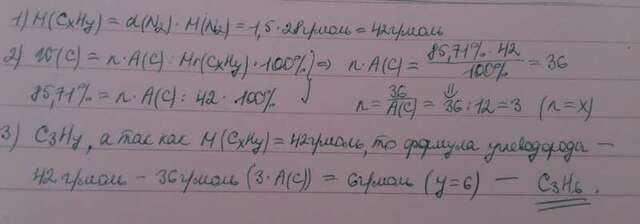 1) M(CxHy) = d(N2)·M(N2) = 1,5·28г/моль = 42г/моль
2) W(C) = n·A(C) : Mr(CxHy)·100% } ⇒ n·A(C) = 85,71%·42 / 100% = 36
85,71% = n·A(C) : 42·100% n = 36 / A(C) = 36:12 = 3 (n = x)
3) C3Hy, а так как M(CxHy) = 42г/моль, то формула углеводорода —
42г/моль - 36г/моль (3·A(C)) = 6г/моль (y = 6) — C3H6.